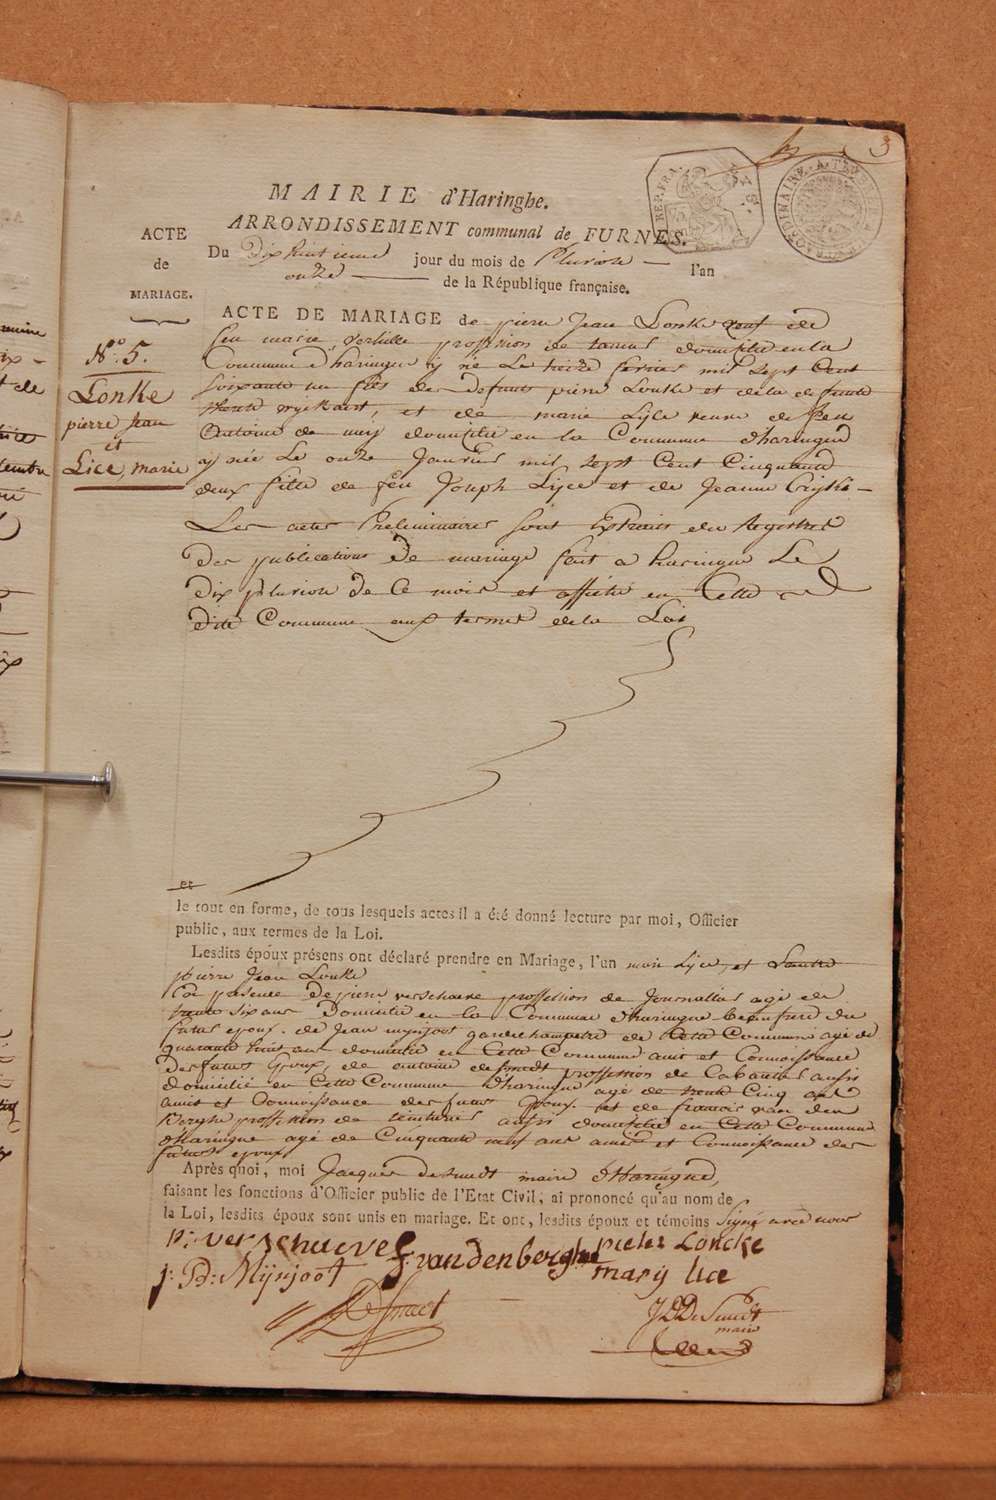 3
MAIRIE d'Haringhe.
ARRONDISSEMENT communal de FURNES.
REP. FRA.
ACTE
de
MARIAGE.
Du Dix huitieme jour du mois de Pluviose l'an
onze de la République française.
N.° 5.
Lonke
pierre Jean
et
Lice, marie
ACTE DE MARIAGE de pierre Jean Lonke veuf de
feu marie profession de domicilié en la
Commune d'haringue y né Le treize fevrier mil sept Cent
soixante un fils des defunts pierre Lonke et de la defunte
et de marie Lyce veuve de feu
Antoine de mey domiciliée en la Commune d'haringue
y née Le onze Janvier mil sept Cent Cinquante
deux fille de feu Joseph Lyce et de Jeanne
Les actes Preliminaires sont Extraits du Registre
des publications De mariage fait a haringue Le
dix pluviose de Ce mois et affiché en Cette
dite Commune aux termes de la Loi
et
le tout en forme, de tous lesquels actes il a été donné lecture par moi, Officier
public, aux termes de la Loi.
Lesdits époux présens ont déclaré prendre en Mariage, l'un marie Lyce, et L'autre
pierre Jean Lonke
En presence De pierre verschaeve profession de Journallier agé de
trente six ans Domicilié en la Commune d'haringue beaufrere du
futur epoux. de Jean mynjoot gardechampetre de Cette Commune agé de
quarante huit ans domicilié en Cette Commune amit et Connoissance
des futurs Epoux, de antoine desmedt profession de Cabaretier aussi
domicilié en Cette Commune D'haringue agé de trente Cinq ans
amit et Connoissance des futurs Epoux. et de francois van den
Berghe profession de teinturier aussi domicilié en Cette Commune
d'Haringue agé de Cinquante neuf ans amis et Connoissance des
futurs epoux
Après quoi, moi Jacques desmedt maire d'Haringue,
faisant les fonctions d'Officier public de l'Etat Civil, ai prononcé qu'au nom de
la Loi, lesdits époux sont unis en mariage. Et ont, lesdits époux et témoins Signé avec nous
p: verschaeve F vandenberghe pieter Loncke
j: Bd: Mynjoot marÿ lice
De Smedt JDDe Smedt
maire